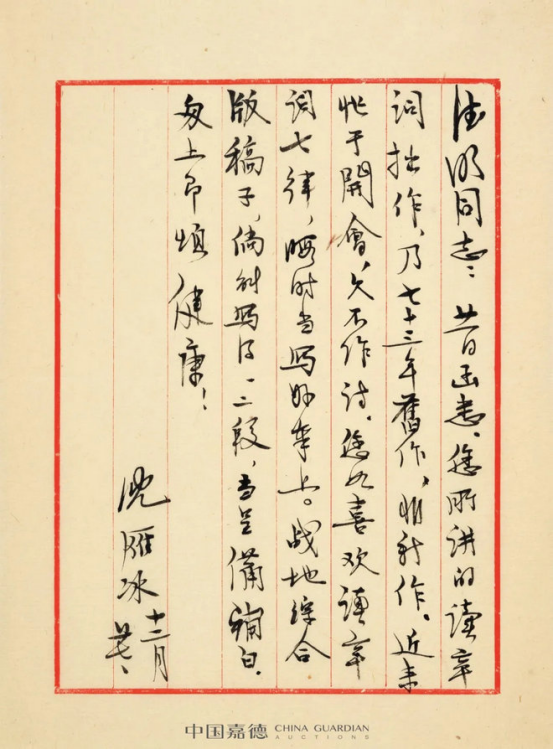 德明同志：廿日函悉、您所讲的讀辛
词拙作，乃七十三年舊作，非新作。近来
忙于開會，久不作诗。您如喜欢讀辛
词七律，暇时当写好奉上。战地综合
版稿子，倘能写得一、二段，当呈備補白。
匆上即颂健康！
沈雁冰 十二月
中国嘉德 CHINA GUARDIAN
AUCTIONS